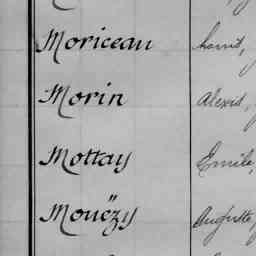 Moriceau
Morin Alexis,
Mottay Emile,
Mouëzy Auguste,